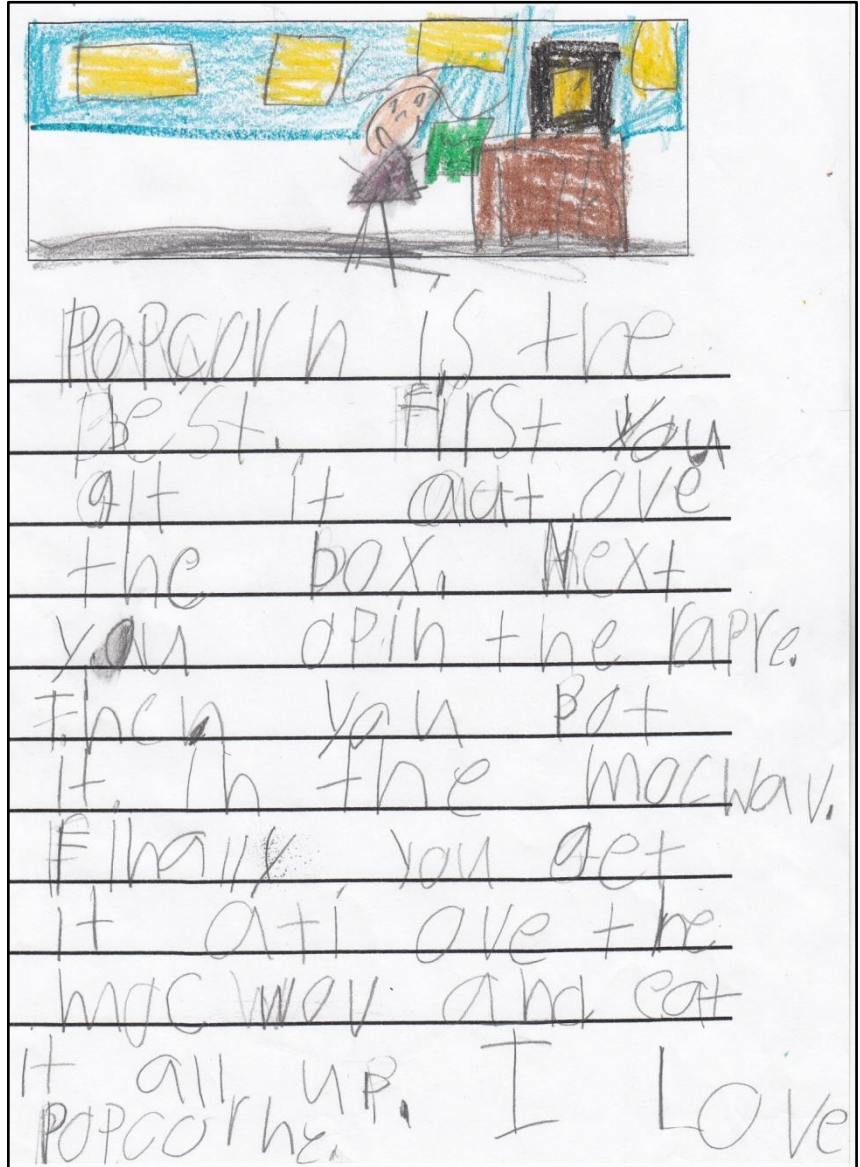 Popcorn is the
best. First you
git it out ove
the box. Next
you opin the rapre.
Then you Pot
it in the mocwav.
Finally you get
it oti ove the
mocwov and eat
it all up. I Love
Popcorn.